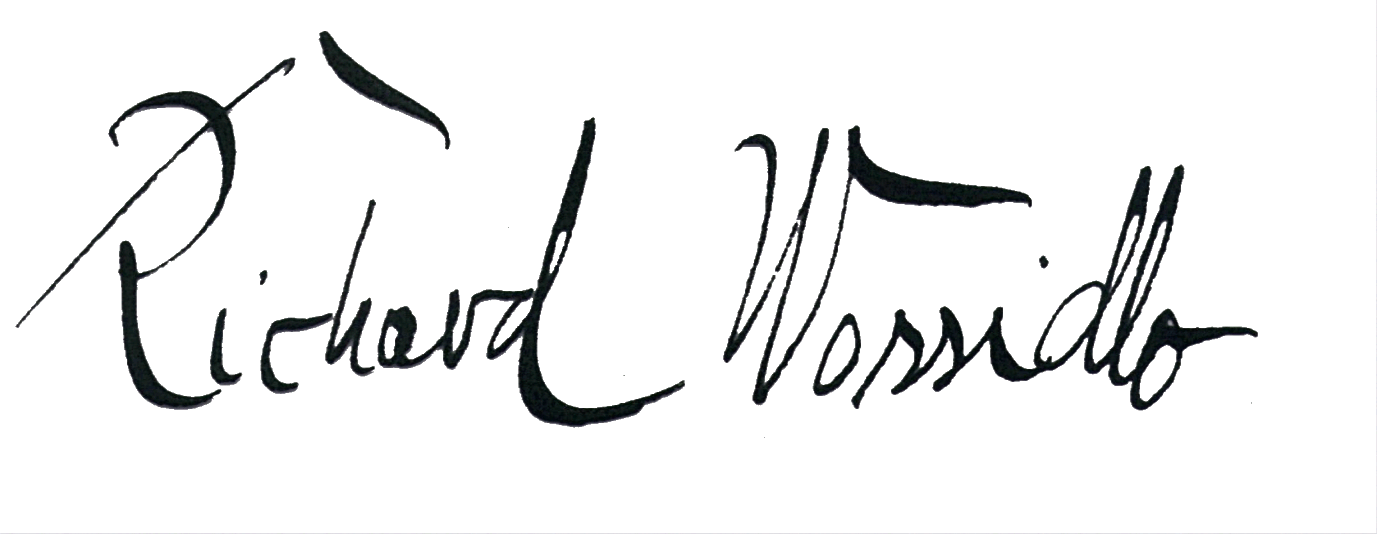 Richard Wossidlo